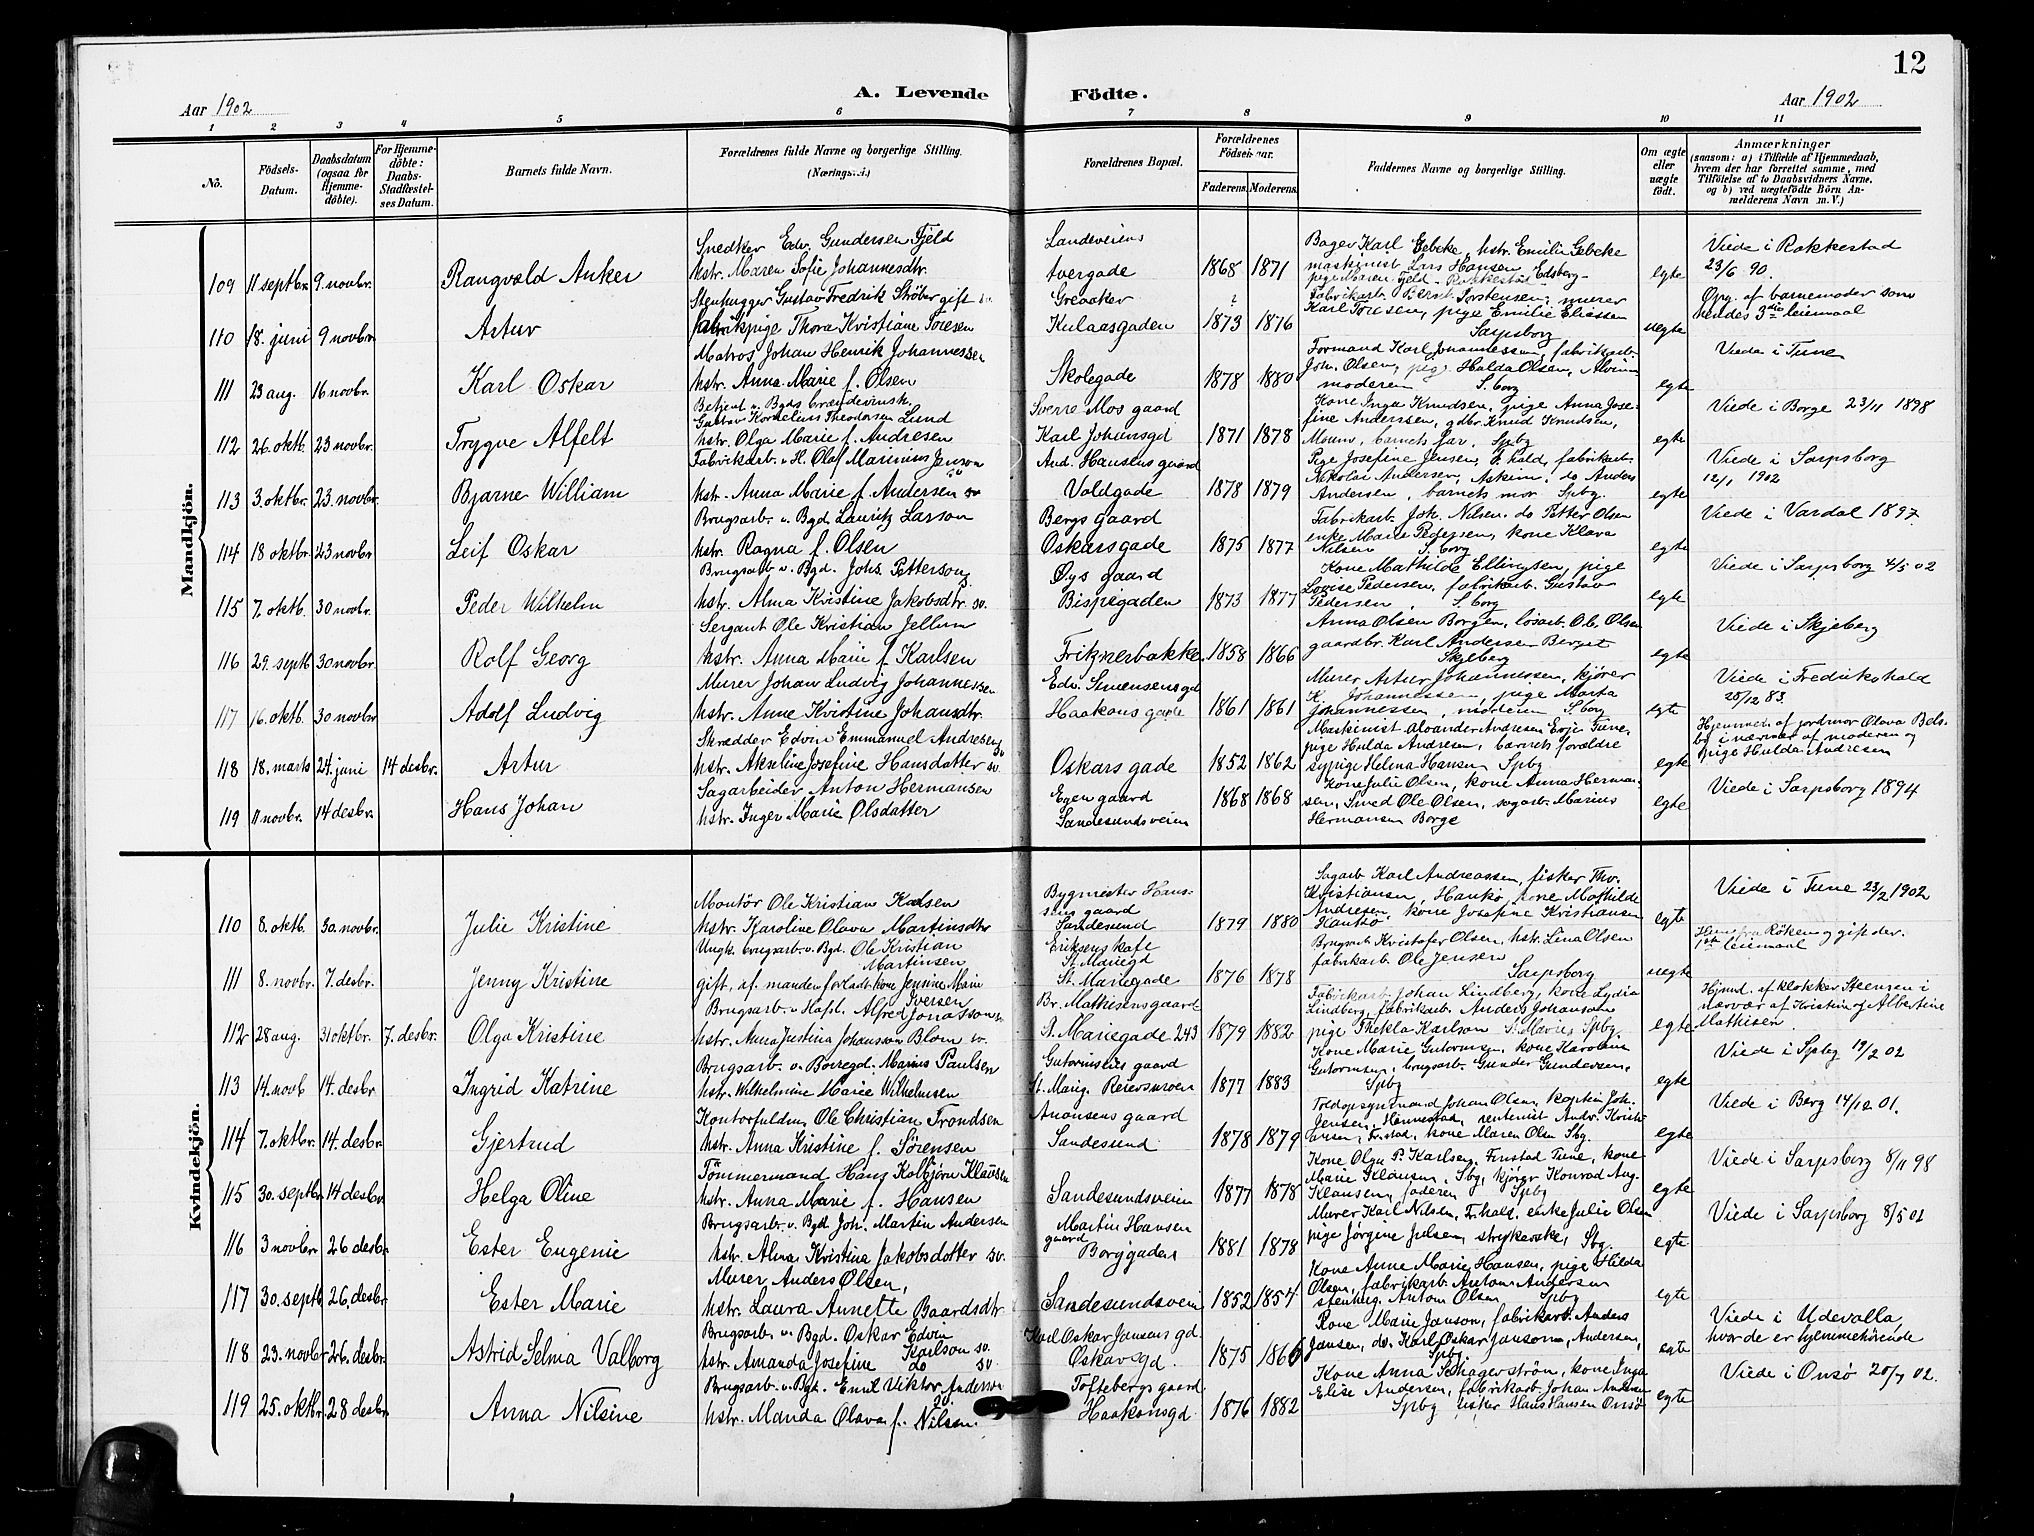 12
Aar 1902
A. Levende Födte.
Aar 1902
1 2 3 4 5 6 7 8 9 10 11
No.
Födsels-Datum.
Daabsdatum (ogsaa for Hjemmedöbte).
For Hjemmedöbte: Daabs-Stadfæstelses Datum.
Barnets fulde Navn.
Forældrenes fulde Navne og borgerlige Stilling. (Næringsvei.)
Forældrenes Bopæl.
Forældrenes Födselsaar.
Faderens. Moderens.
Faddernes Navne og borgerlige Stilling.
Om ægte eller uægte födt.
Anmærkninger
(saasom: a) i Tilfælde af Hjemmedaab, hvem der har forrettet samme, med Tilföielse af to Daabsvidners Navne, og b) ved uægtefödte Börn Anmelderens Navn m. V.)
Mandkjön.
109 11 septbr. 9. novbr. Rangvald Anker
Snedker Edv. Gundersen Fjeld
hstr. Maren Sofie Johannesdtr.
Landeveiens
tvergade
1868 1871
Bager Karl Gebeke hstr. Emilie Gebeke
maskinist Lars Hansen
pige Maren Fjeld - Rakkestad - Edsberg -
egte
Viede i Rakkestad
23/6 90.
110 18. juni 9 novbr. Artur
Stenhugger Gustav Fredrik Ströber gift
fabrikpige Thora Kristiane Toresen
Greaaker
Kulaasgaden
? 1873 1876
Fabrikarb. Bernt Torstensen, murer
Karl Toresen, pige Emilie Eliassen
Sarpsborg
uegte
Opg. af barnemoder som
hendes 3die leiemaal
111 23 aug. 16 novbr. Karl Oskar
Matros Johan Henrik Johannessen
hstr. Anna Marie f. Olsen
Skolegade
1878 1880
Formand Karl Johannessen, fabrikarb.
Joh. Olsen, pige Hulda Olsen,
moderen S.borg
egte
Viede i Tune
112 26. oktb. 23 novbr. Trygve Alfelt
Betjent v. Bgds brændevinsh.
Gustav Kornelius Theodorsen Lund
hstr. Olga Marie f. Andresen
Sverre Mos gaard
Karl Johansgd
1871 1878
Kone Inga Knudsen, pige Anna Jose-
fine Andersen, gdbr. Knud Knudsen,
Moum, barnets far, Spbg
egte
Viede i Borge 23/11 1898
113 3. oktbr. 23. novbr. Bjarne William
Fabrikarb. v. H. Olaf Marinius Jenson
hstr. Anna Marie f. Andersen sv
And. Hansens gaard
Voldgade
1878 1879
Pige Josefine Jensen, F.hald, fabrikarb.
Nikolai Andersen, Askim, do Anders
Andersen, barnets mor Spbg.
egte
Viede i Sarpsborg
12/1 1902
114 18 oktbr. 23 novbr Leif Oskar
Brugsarb. v. Bgd. Lauritz Larson
hstr. Ragna f. Olsen
Bergs gaard
Oskarsgade
1875 1877
Fabrikarb. Joh. Nilsen. do Petter Olsen
enke Marie Pedersen, kone Klara
Nilsen S.borg
egte
Viede i Vardal 1897
115 7. oktb. 30 novbr. Peder Wilhelm
Brugsarb v. Bgd. Johs. Petterson
hstr. Alma Kristine Jakobsdtr sv.
Øys gaard
Bispegaden
1873 1877
Kone Mathilde Ellingsen, pige
Lovise Pedersen, fabrikarb. Gustav
Pedersen S.borg
egte
Viede i Sarpsborg 4/5 02
116 29. septb 30 novbr. Rolf Georg
Sergant Ole Kristian Jellum
hstr. Anna Marie f. Karlsen
Friknerbakke
1858 1866
Anna Olsen Borgen, lösarb. Ole Olsen
gaardbr. Karl Andersen Berget
Skjeberg
egte
Viede i Skjeberg
117 16. oktb. 30 novbr. Adolf Ludvig
Murer Johan Ludvig Johannessen
hstr. Anne Kristine Johansdtr.
Edv. Simensens gd
Haakons gade
1861 1861
Murer Artur Johannessen, kjörer
K. Johannessen, pige Marta
Johannessen, moderen S.borg
egte
Viede i Fredrikshald
28/12 83.
118 18. marts 24. juni 14 desbr. Artur
Skrædder Edvin Emmanuel Andresen sv
hstr. Akseline Josefine Hansdatter sv.
Oskars gade
1852 1862
Maskinist Alexander Andresen Evje Tune,
pige Hulda Andresen, barnets forældre
sypige Helma Hansen Spbg
egte
Hjemmed. af jordmor Olava
i nærvær af moderen og
pige Hulda Andresen
119 11 novbr. 14 desbr. Hans Johan
Sagarbeider Anton Hermansen
hstr. Inger Marie Olsdatter
Egen gaard
Sandesundsveien
1868 1868
Kone Julie Olsen, kone Anna Herman-
sen, Smed Ole Olsen, sagarb. Marius
Hermansen Borge
egte
Viede i Sarpsborg 1894
Kvindekjön.
110 8. oktb. 30. novbr. Julie Kristine
Montör Ole Kristian Karlsen
hstr. Karoline Olava Martinsdtr
Bygmester Hans-
sens gaard
Sandesund
1879 1880
Sagarb Karl Andreassen, fisker Thv.
Kristiansen, Hankö, kone Mathilde
Andresen, kone Josefine Kristiansen
Hankö
egte
Viede i Tune 23/2 1902
111 8. novbr. 7. desbr. Jenny Kristine
Ungk. brugsarb. v. Bgd. Ole Kristian
Martinsen
gift, af manden forladt kone Jennine Marie
Iversen
Eriksens kafe
St. Mariegd
St. Mariegade
1876 1878
Brugsarb Kristofer Olsen, hstr. Lina Olsen
fabrikarb Ole Jensen
Sarpsborg
uegte
Hun fra Röken og gift der.
1ste leiemaal
112 28 aug. 31 oktbr. 7. desbr. Olga Kristine
Brugsarb. v. Hafsl. Alfred Jonasson
hstr. Anna Justina Johansson Blom sv.
Br. Mathisens gaard
St. Mariegade 243
1879 1882
Fabrikarb Johan Lindberg, kone Lydia
Lindberg, fabrikarb. Anders Johanson
pige Thekla Karlson St. Marieg Spbg
egte
Hjemd. af klokker Steensen i
nærvær af Kristin og Albertine
Mathisen.
113 14. novb 14. desbr Ingrid Katrine
Brugsarb. v. Borregd. Marius Paulsen
hstr. Wilhelmine Marie Wilhelmsen
Gutormsens gaard
St. Marieg.
1877 1883
Kone Marie Gutormsen, kone Karoline
Gutormsen, brugsarb. Gunder Gundersen,
Spbg
egte
Viede i Spbg 19/2 02
114 7. oktbr. 14. desbr. Gjertrud
Kontorfuldm. Ole Christian Trondsen
hstr. Anna Kristine f. Sörensen
Anonsens gaard
Sandesund
1878 1879
Toldopsynsmand Johan Olsen, kaptin Joh.
Jensen, rentenist Andr. Kristi-
ansen, Fr.stad, kone Maren Olsen Sbg.
egte
Viede i Berg 14/12 01.
115 30. septbr 14 desbr Helga Oline
Tömmermand Hans Kolbjörn Klausen
hstr. Anna Marie f. Hansen
Sandesundsveien
1877 1878
Kone Olga P. Karlsen, Tune, kone
Marie Klausen, Sbg, kjörer Konrad Aug.
Klausen, faderen Spbg
egte
Viede i Sarpsborg 8/11 98
116 3 novbr. 26 desbr. Ester Eugenie
Brugsarb. v. Bgd Joh. Martin Andersen
hstr. Alma Kristina Jakobsdotter sv.
Martin Hansen
gaard
Borggaden
1881 1878
Murer Karl Nilsen, Fr.hald, enke Julie Olsen
pige Jörgine Jelsen, strykerske, Sbg.
egte
Viede i Sarpsborg 8/5 02
117 30. septb 26. desbr Ester Marie
Murer Anders Olsen,
hstr. Laura Annette Baardsdtr.
Sandesundsvein
1852 1854
Kone Anne Marie Hansen, pige Hilda
Olsen, fabrikarb. Anton Andersen
stenhug. Anton Olsen Spbg
egte
118 23. novbr 26. desbr. Astrid Selma Valborg
Brugsarb. v. Bgd. Oskar Edvin
Karlson sv.
hstr. Amanda Josefine do sv.
Karl Oskar Jansens gd.
Oskarsgd.
1875 1866
Kone Marie Janson, fabrikarb. Anders
Jansen, do. Karl Oskar Janson, Andersen,
Spbg.
egte
Viede i Udevalla,
hvor de er hjemmehörende
119 25. oktbr. 28 desbr. Anna Nilsine
Brugsarb. v. Bgd. Emil Viktor Anderson
sv.
hstr. Manda Olava f. Nilsen
Toftebergs gaard
Haakonsgd.
1876 1882
Kone Anna Schagerström, kone Inga
Elise Andersen, fabrikarb. Johan Andersen
Spbg fisker Hans Hansen Onsö
egte
Viede i Onsö 20/7 02.